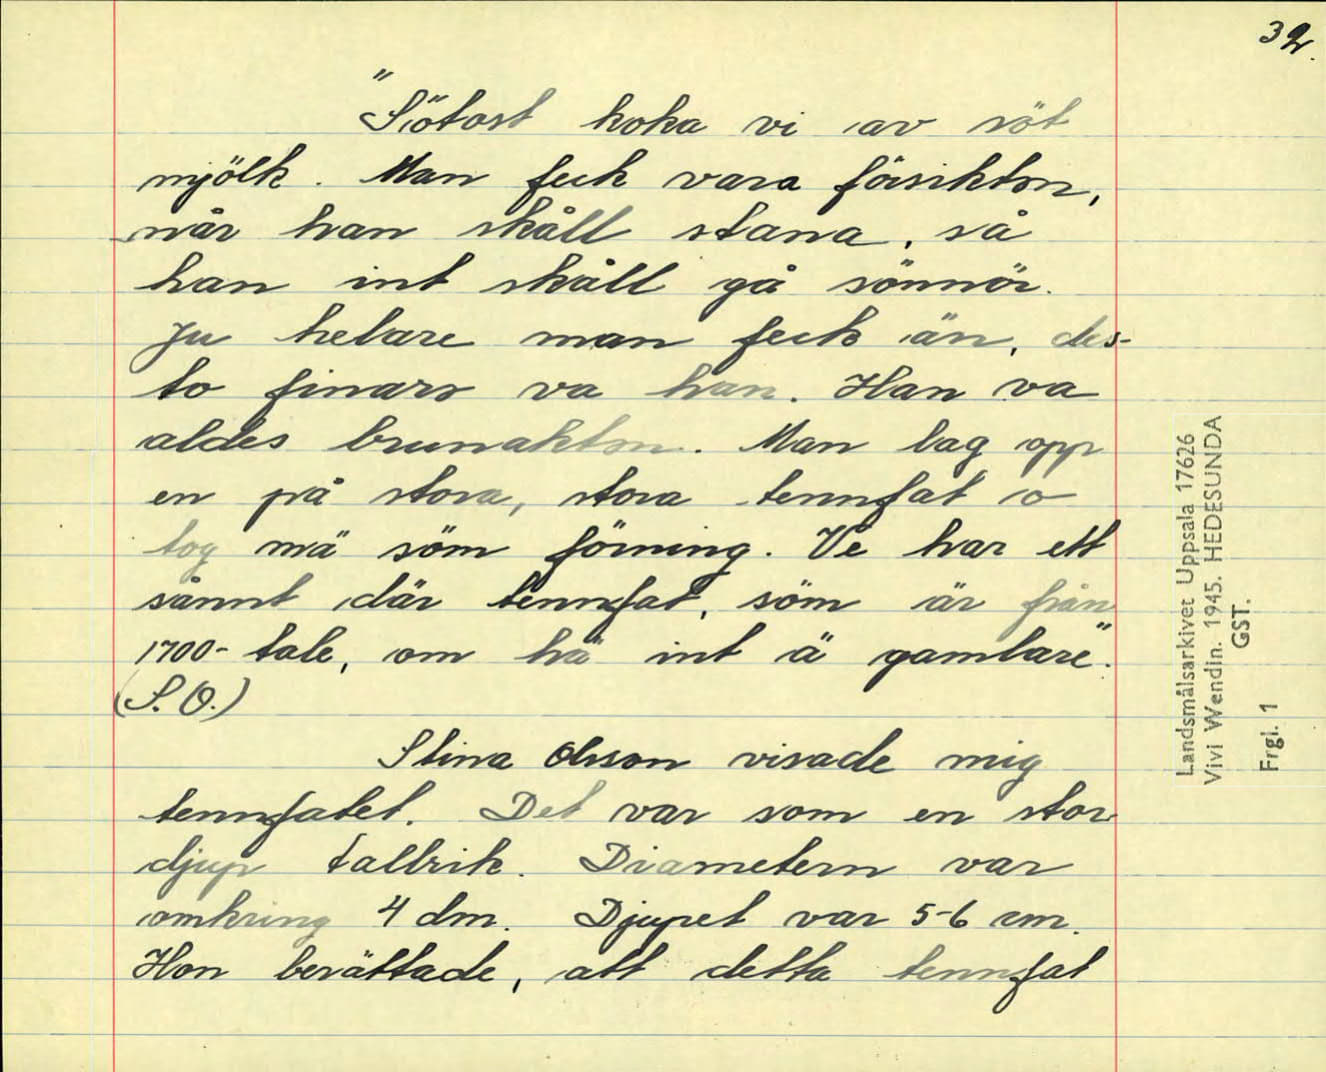 32.
"Sötost koka vi av söt
mjölk. Man feck vara försiktin,
når han skåll stana, så
han int skåll gå sönnör.
Ju helare man feck än, des-
to finare va han. Han va
aldes brunaktin. Man lag opp
en på stora, stora tennfat o
tog mä söm förning. Ve har ett
sånnt där tennfat, söm är från
1700-tale, om hä int ä gamlare".
(S.O.)
Stina Olsson visade mig
tennfatet. Det var som en stor
djup tallrik. Diametern var
omkring 4 dm. Djupet var 5-6 cm.
Hon berättade, att detta tennfat
Landsmålsarkivet Uppsala 17626
Vivi Wendin. 1945. HEDESUNDA
GST.
Frgl. 1